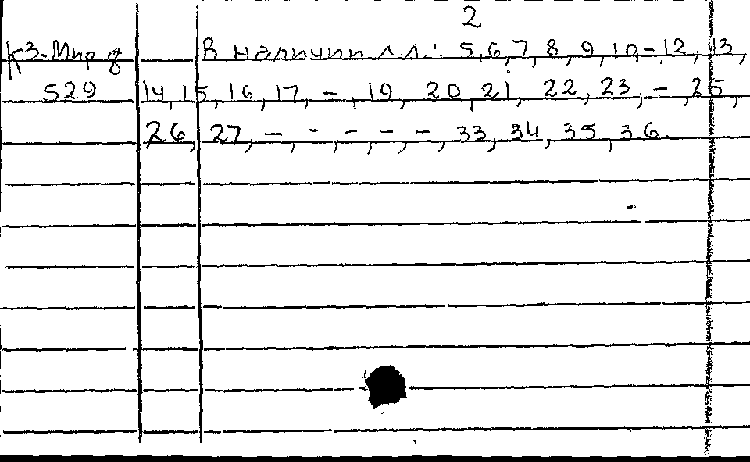 2
К3-Мир ф В наличии л.л.: 5,6,7,8,9,10-12,13,
529 14,15,16,17,-,19,20,21,22,23,-,25,
26,27,-,-,-,-,-,33,34,35,36.